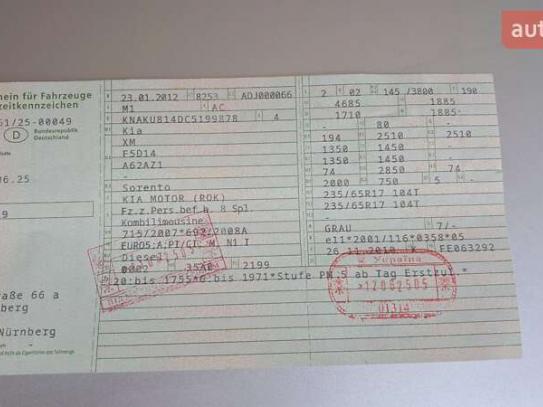 aut
hein für Fahrzeuge
zeitkennzeichen
61/25-00049
D Bundesrepublik
Deutschland
06.25
9
aße 66 a
berg
Nürnberg
23.01.2012 8253 ADJ000066
M1 AC
KNAKU814DC5199878 4
Kia
XM
F5D14
A62AZ1
-
Sorento
KIA MOTOR (ROK)
Fz.z.Pers.bef.b. 8 Spl.
Kombilimousine
715/2007*692/2008A
EURO5;A;PI/CI; M, N1 I
Diesel
0002 35A0 2199
2 02 145 /3800 190
4685 1885
1710 1885-
- 80 -
194 2510 2510
1350 1450 -
1350 1450 -
74 2850 74
2000 750 5 -
235/65R17 104T
235/65R17 104T
-
GRAU 7/-
e11*2001/116*0358*05
26.11.2010 K FE063292
20:bis 1755*6:bis 1971*Stufe PM 5 ab Tag Erstzul.*
Україна
*12062505
01314